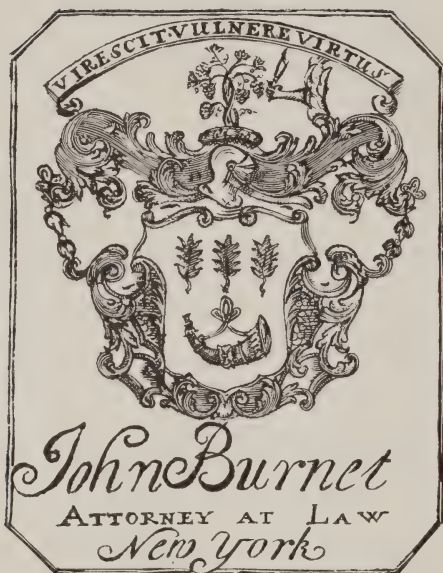 VIRESCIT·VULNERE VIRTUS
John Burnet
ATTORNEY AT LAW
New York